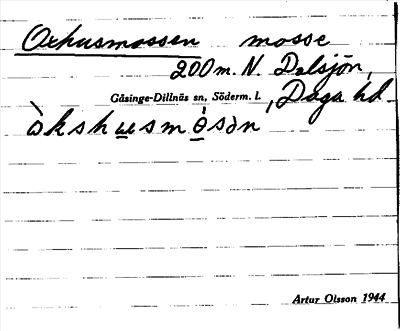 Oxhusmossen mosse
200 m. N. Dalsjön,
Gåsinge-Dillnäs sn, Söderm. l. , Daga hd.
òkshusmósòn
Artur Olsson 1944